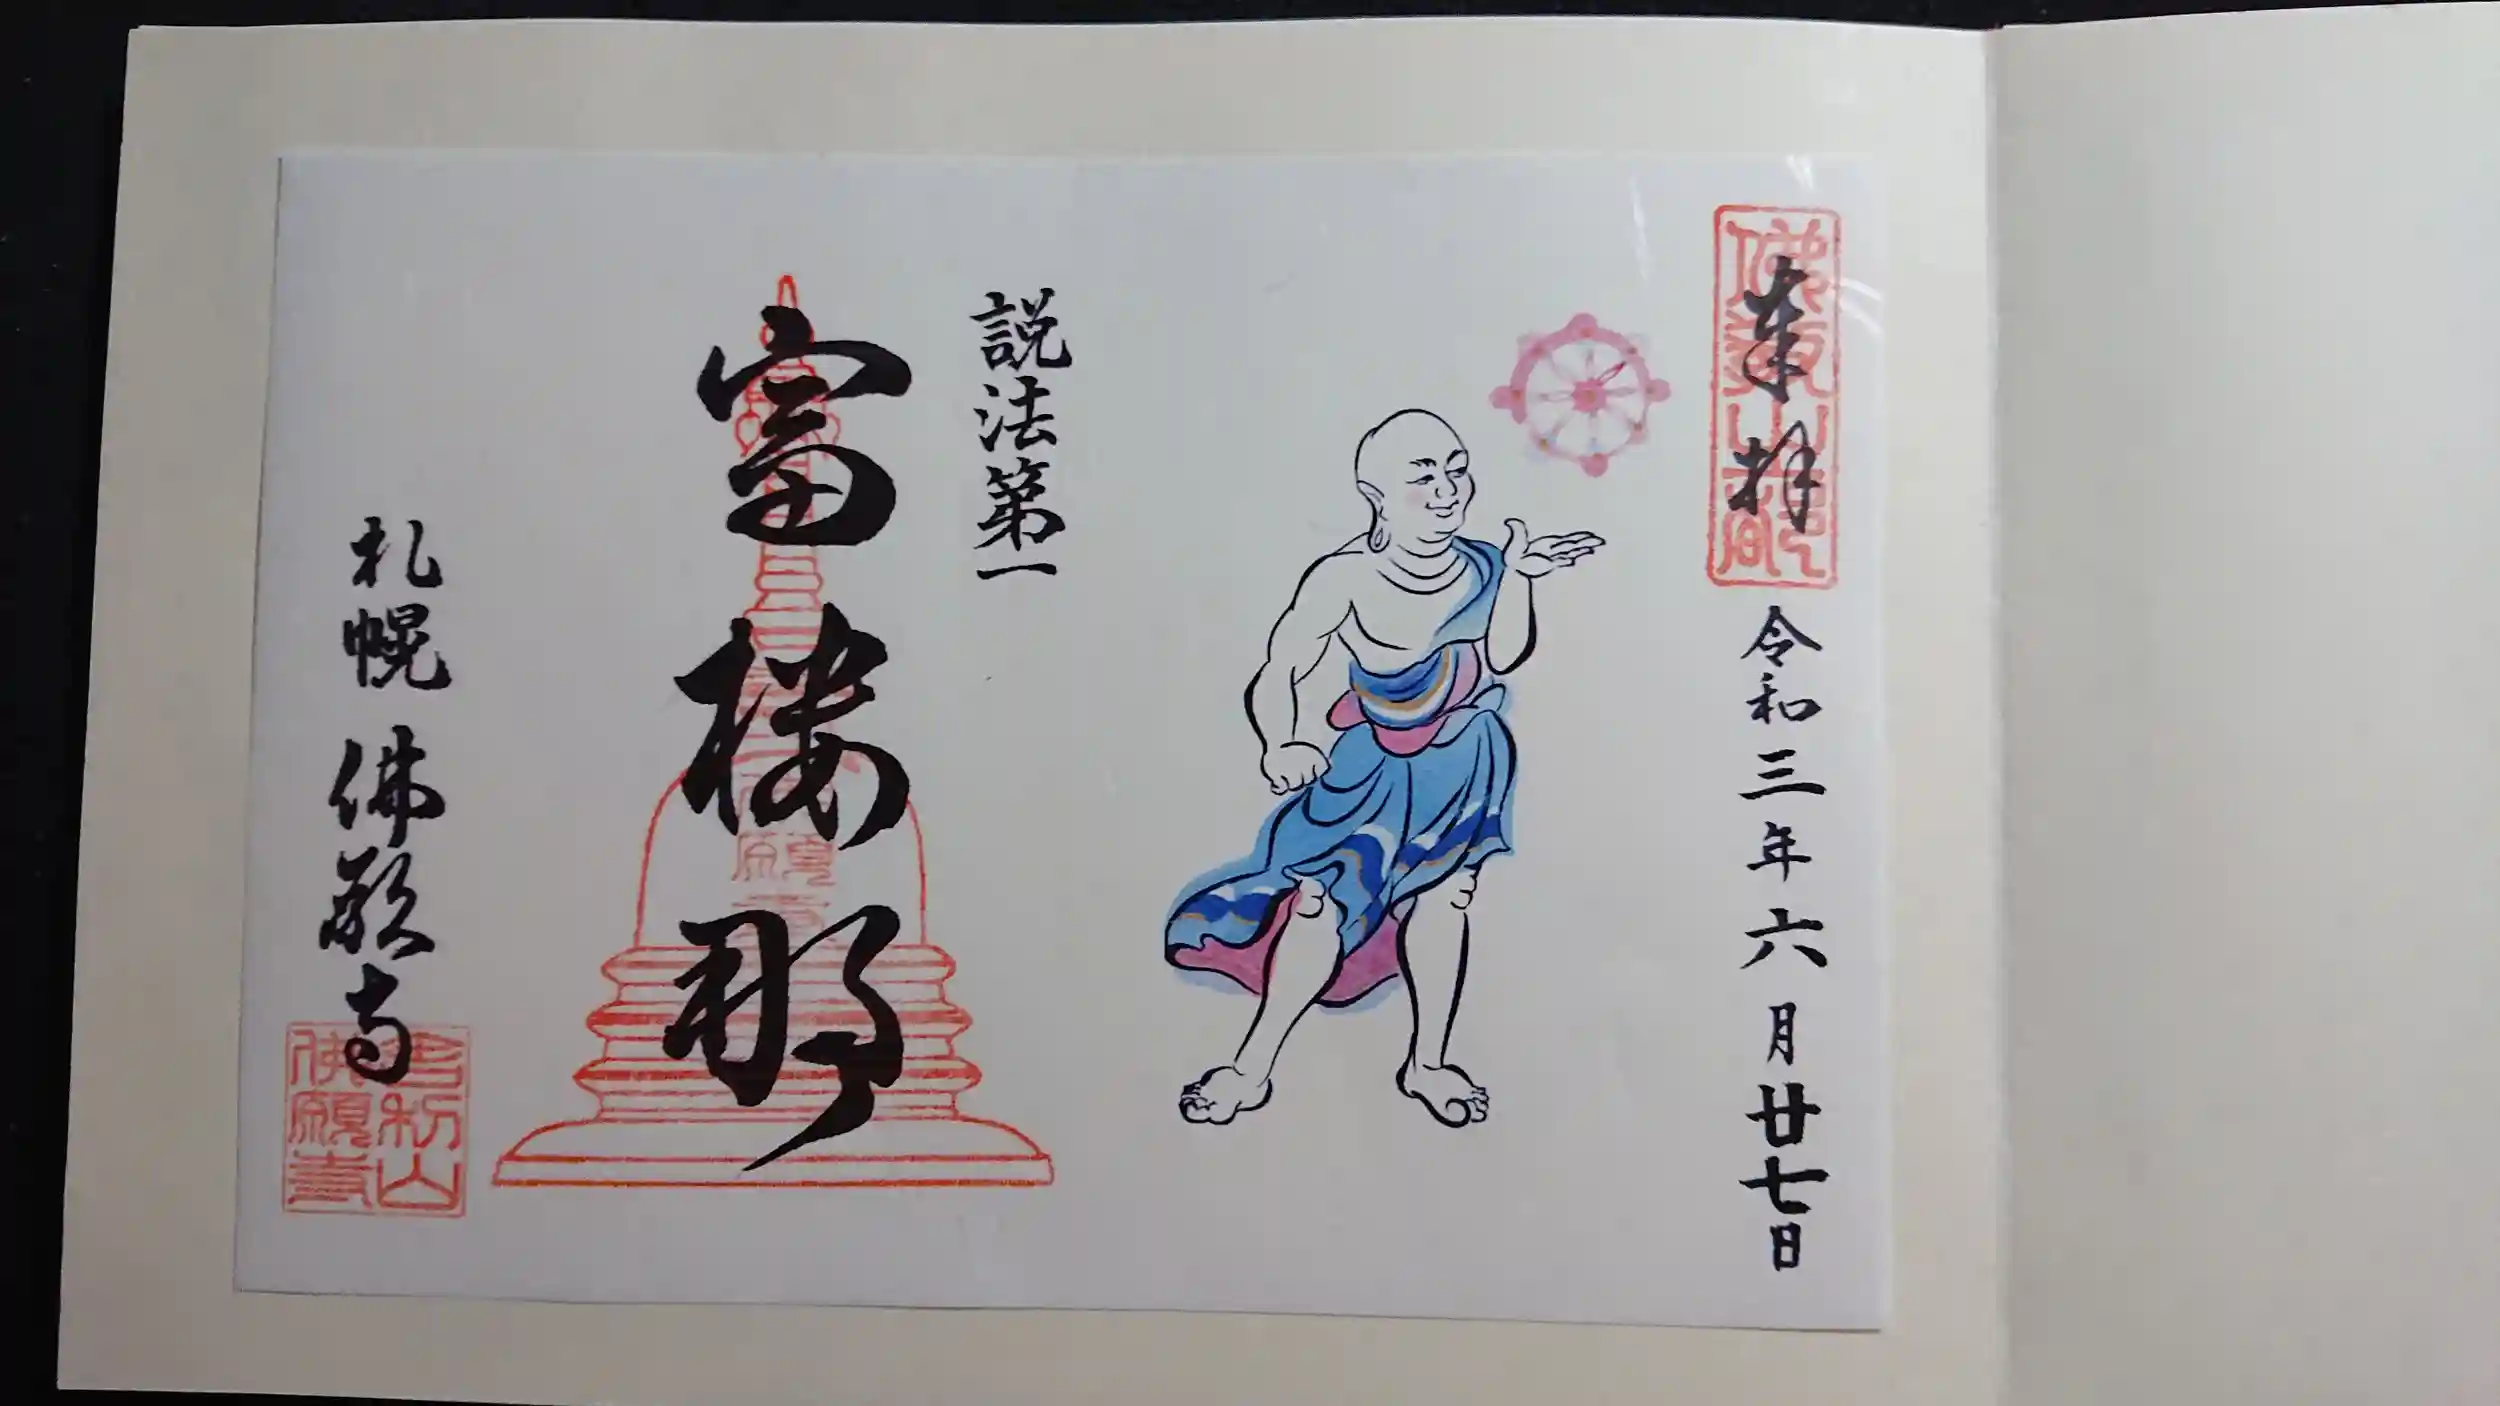 奉拝
令和三年六月廿七日
説法第一
富楼那
札幌 佛願寺
舎利山
佛願寺